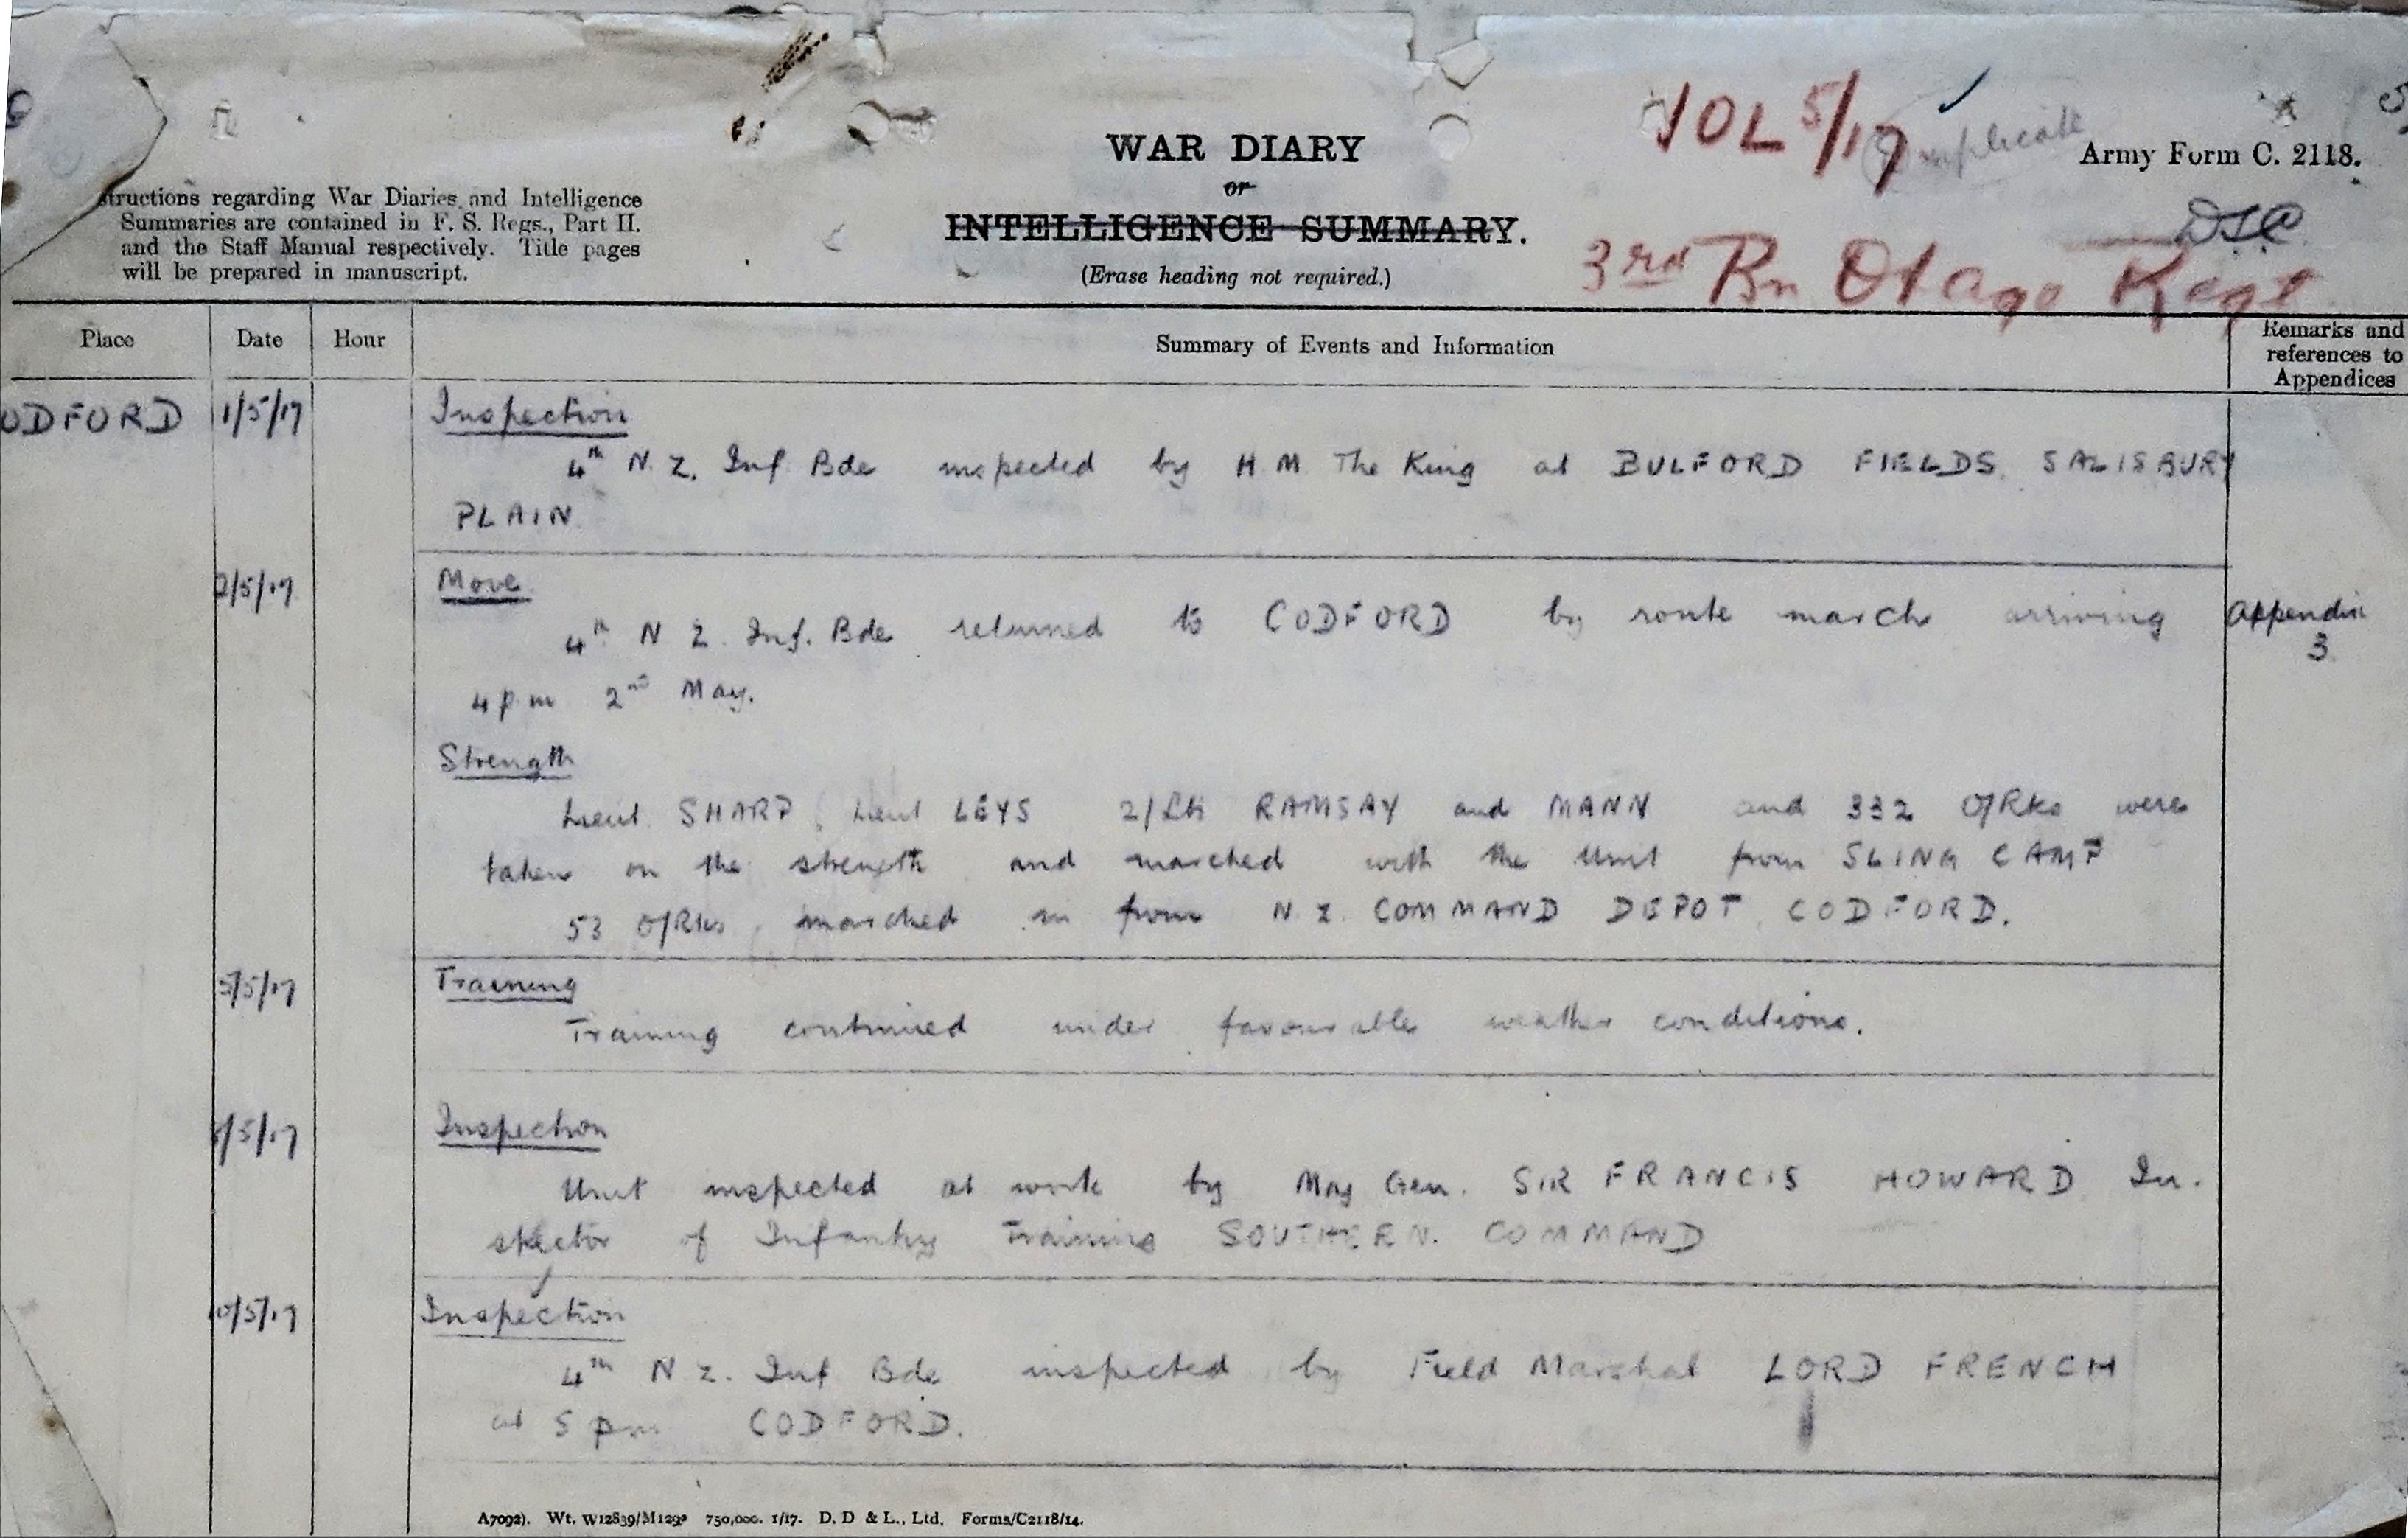 VOL 5/17
Duplicate
WAR DIARY
Army Form C. 2118.
or
INTELLIGENCE SUMMARY.
(Erase heading not required.)
structions regarding War Diaries and Intelligence
Summaries are contained in F. S. Regs., Part II.
and the Staff Manual respectively. Title pages
will be prepared in manuscript.
3rd Bn Otago Regt
Place Date Hour Summary of Events and Information Remarks and
references to
Appendices
ODFORD 1/5/17 Inspection
4th N.Z. Inf Bde inspected by H M The King at BULFORD FIELDS SALISBURY
PLAIN
2/5/17 Move
4th N Z. Inf. Bde returned to CODFORD by route march arriving Appendix
3
4 pm 2nd May.
Strength
Lieut SHARP, Lieut LEYS 2/Lts RAMSAY and MANN and 332 O/Rks were
taken on the strength and marched with the Unit from SLING CAMP
53 O/Rks marched in from N.Z. COMMAND DEPOT CODFORD.
5/5/17 Training
Training continued under favourable weather conditions.
/5/17 Inspection
Unit inspected at work by Maj Gen. SIR FRANCIS HOWARD In.
spector of Infantry Training SOUTHERN. COMMAND
10/5/17 Inspection
4th N Z. Inf Bde inspected by Field Marshal LORD FRENCH
at 5 pm CODFORD.
A7092). Wt. W12839/M1292 750,000. 1/17. D. D & L., Ltd. Forms/C2118/14.